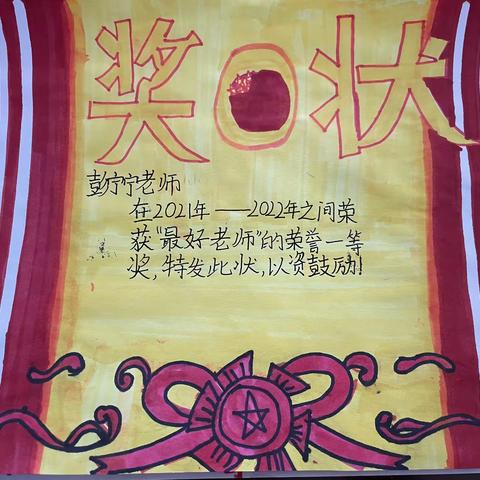 奖状
彭宁宁老师
在2021年——2022年之间荣
获"最好老师"的荣誉一等
奖,特发此状,以资鼓励!